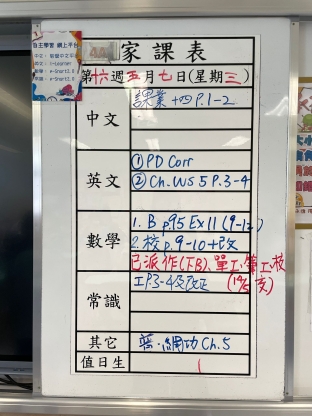 自主學習 網上平台
4A
家課表
第十六週五月七日(星期三)
中文
課業十四 P.1-2
英文
① PD Corr
② Ch. WS 5 P.3-4
數學
1. B p.95 Ex11 (9-12)
2. 校 p.9-10+改
已派 作(下B)、單工、
常識
工P.3-4及改正
其它
網功 Ch.5
值日生
1